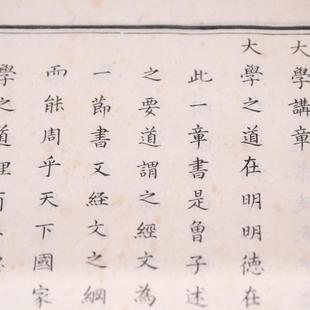 大學講章
大學之道在明明德在
此一章書是魯子述
之要道謂之經文為
一節書又经文之綱
而能周乎天下國家
學之道理